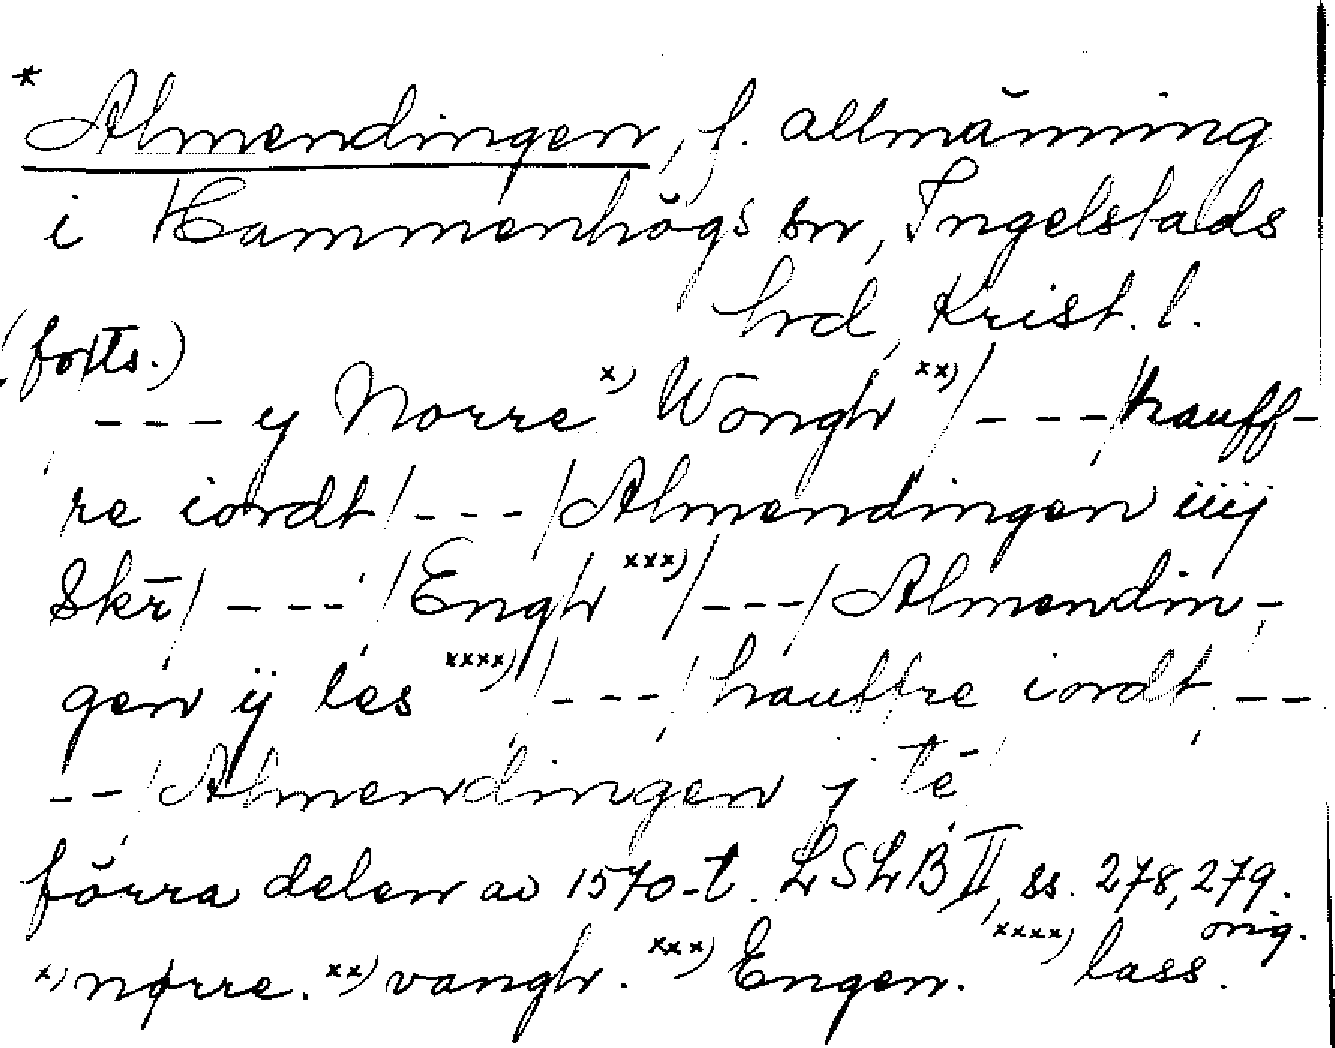 * Almendingen, f. allmänning
i Hammenhögs sn, Ingelstads
hrd, Krist. l.
(forts.)
- - - y Norre x) Wongh xx) / - - - / hauff-
re iordt / - - - / Almendingen iiij
Skr̄ / - - - / Engh xxx) / - - - / Almendin-
gen ij les xxxx) / - - - / hauffre iordt, - -
- - / Almendingen j tē
förra delen av 1570-t. LSLB II, ss. 278, 279.
orig.
x) nørre. xx) vangh. xxx) Engen. xxxx) lass.